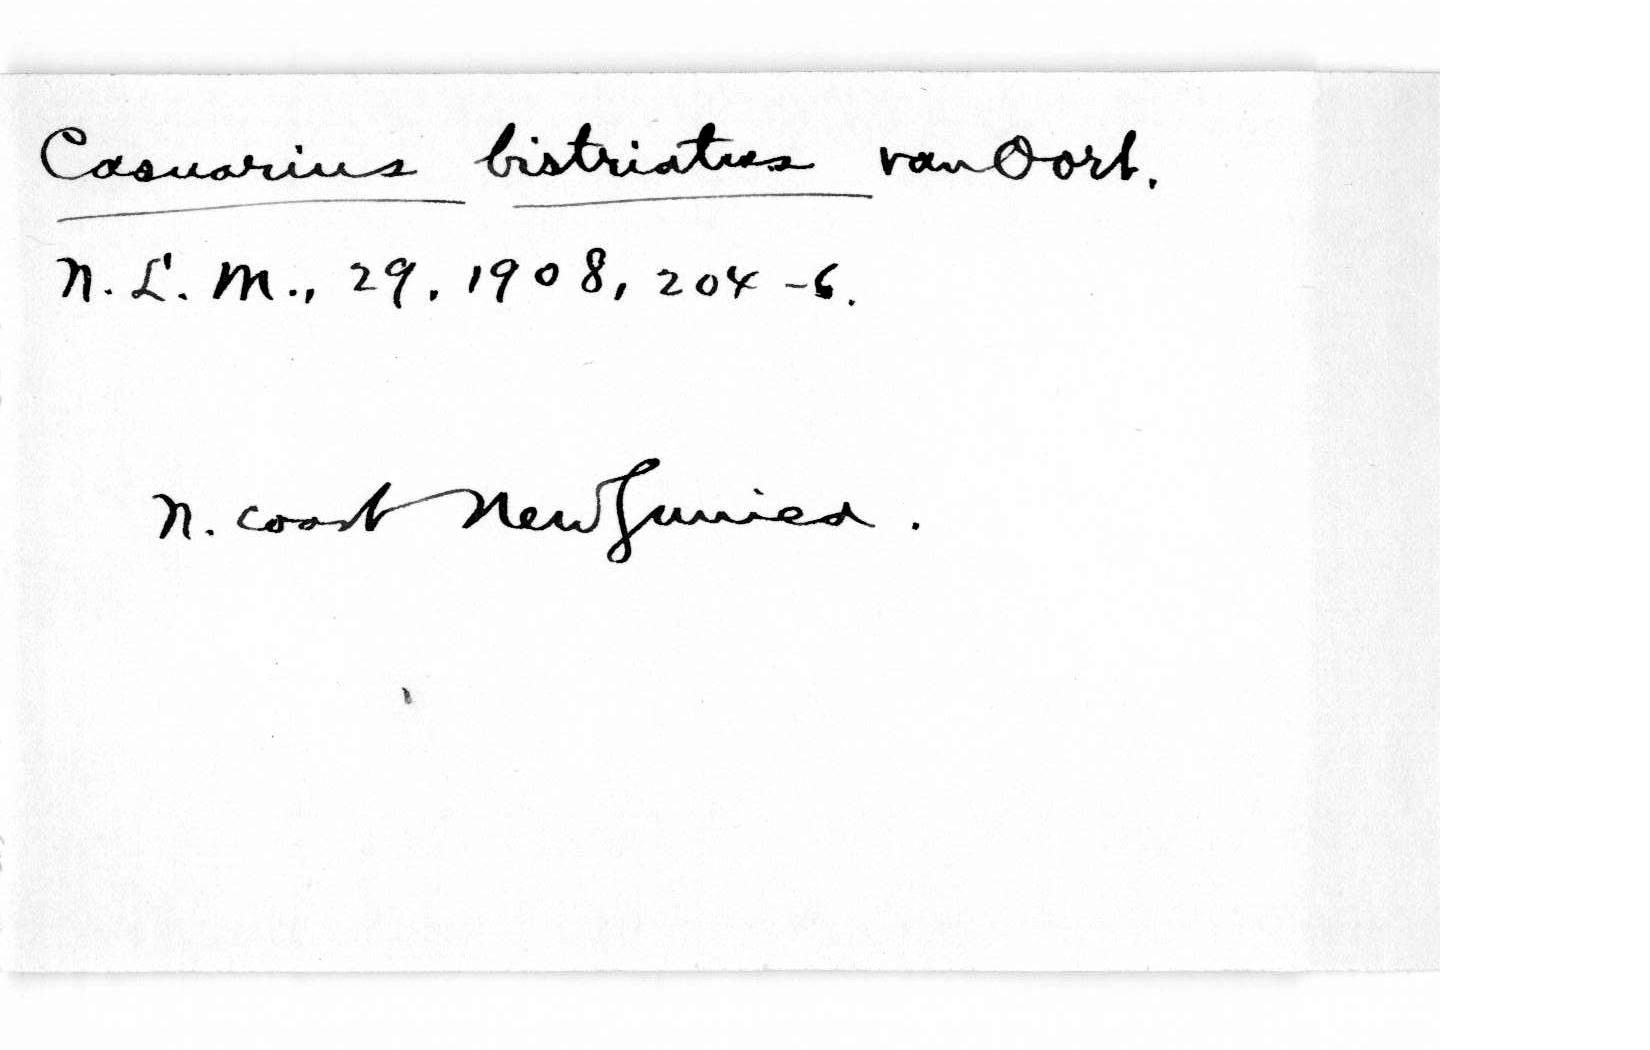 Casuarius bistriatus van Oort.
N. L. M., 29, 1908, 204-6.
N. coast New Guinea.